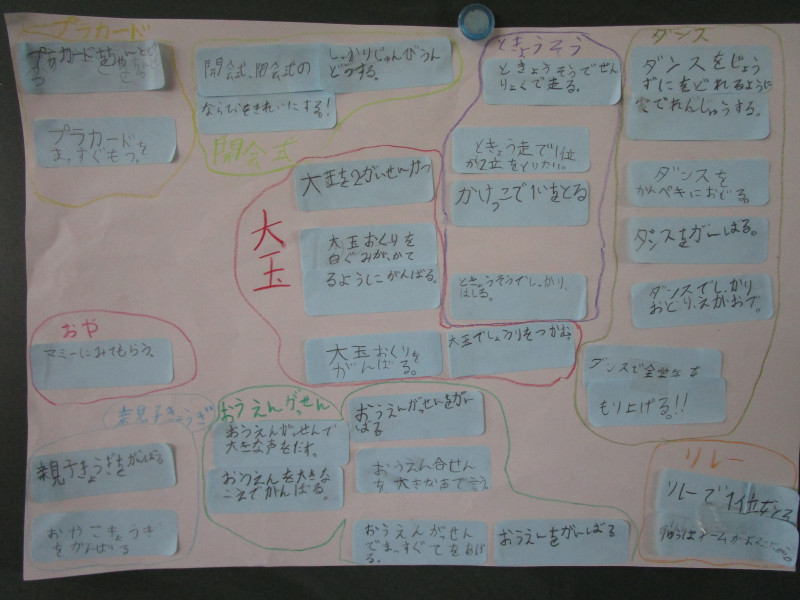 プラカード
プラカードを
プラカードを
まっすぐもつ。
開会式、閉会式の
しっかりじゅんびうん
どうする。
ならびをきれいにする!
開会式
ときょうそう
ときょうそうでぜん
りょくで走る。
ときょう走で1位
か2位をとりたい。
かけっこで1いをとる
ときょうそうでしっかり、
はしる。
ダンス
ダンスをじょう
ずにをどれるように
家でれんしゅうする。
ダンスを
かんペキにおどる。
ダンスをがんばる。
ダンスでしっかり
おどり、えがおで。
ダンスで全せを
もり上げる。!!
大玉
大玉を2かいせんかつ
大玉おくりを
白ぐみが、かて
るようにがんばる。
大玉おくりを
がんばる。
大玉でしょうりをつかむ
おや
マミーにみてもらう。
親子きょうぎ
親子きょうぎをがんばる
おやこきょうぎ
をがんばる
おうえんがっせん
おうえんがっせんで
大きな声をだす。
おうえんを大きな
こえでがんばる。
おうえんがっせんをがん
ばる
おうえん合せん
を大きな声で言う
おうえんがっせん
でまっすぐてをあげ
る。
おうえんをがんばる
リレー
リレーで1位をとる